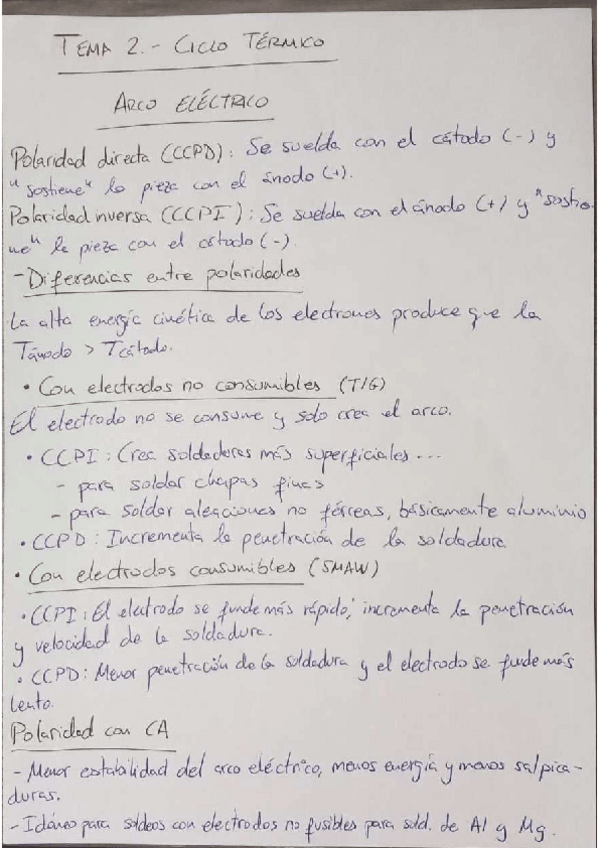 TEMA 2.- CICLO TÉRMICO
ARCO ELÉCTRICO
Polaridad directa (CCPD): Se suelda con el cátodo (-) y
"sostiene" la pieza con el ánodo (+).
Polaridad inversa (CCCPI): Se suelda con el ánodo (+) y "sostie-
ne" la pieza con el cátodo (-).
- Diferencias entre polaridades
La alta energía cinética de los electrones produce que la
Tánodo > Tcátodo.
• Con electrodos no consumibles (TIG)
El electrodo no se consume y solo crea el arco.
• CCPI: Crea soldaduras más superficiales...
- para soldar chapas finas
- para soldar aleaciones no férreas, básicamente aluminio
• CCPD: Incrementa la penetración de la soldadura
• Con electrodos consumibles (SMAW)
• CCPI: El electrodo se funde más rápido; incrementa la penetración
y velocidad de la soldadura.
• CCPD: Menor penetración de la soldadura y el electrodo se funde más
lento.
Polaridad con CA
- Menor estabilidad del arco eléctrico, menos energía y menos salpica-
duras.
- Idóneo para soldeos con electrodos no fusibles para sold. de Al y Mg.